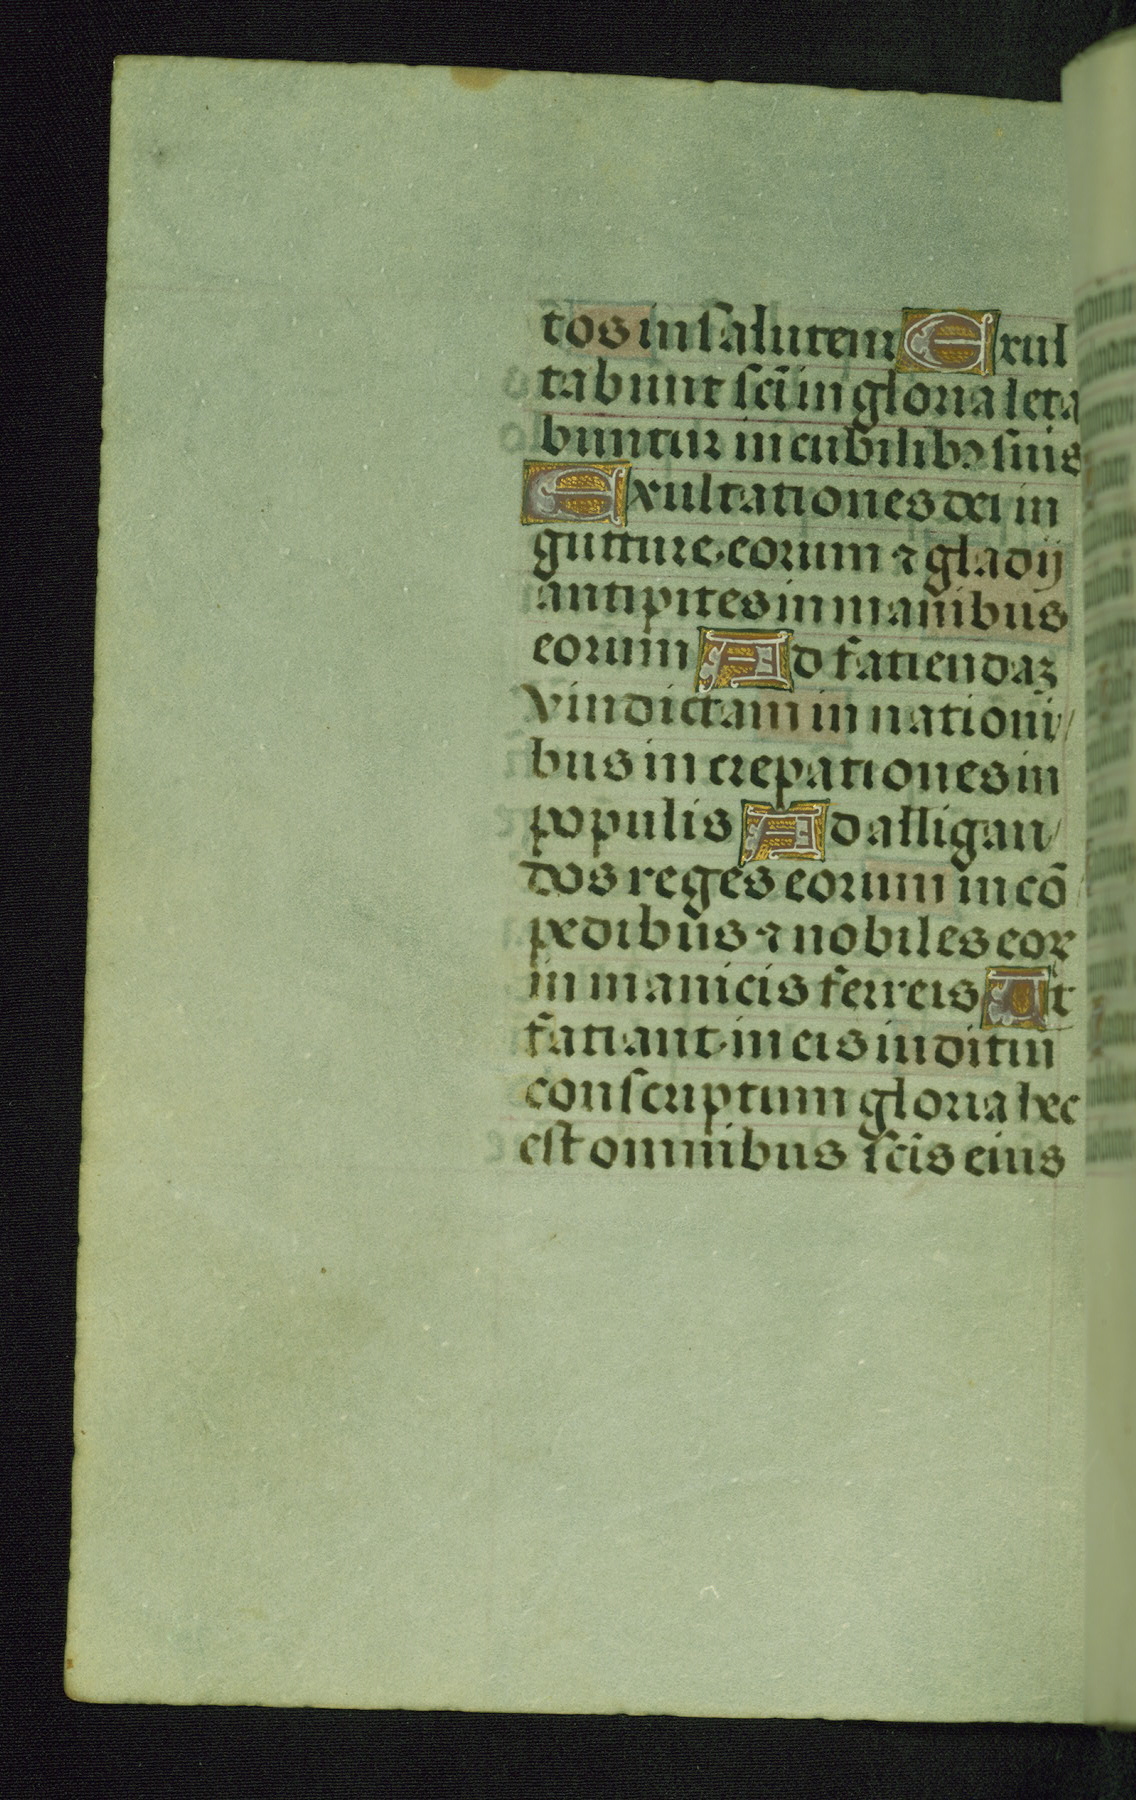 tos in salutem Exul
tabunt sc̄i in gloria leta
buntur in cubilibꝫ suis
Exultationes dei in
gutture eorum ⁊ gladij
ancipites in manibus
eorum Ad faciendaꝫ
vindictam in nationi/
bus increpationes in
populis Ad alligan/
dos reges eorum in cō
pedibus ⁊ nobiles eoꝝ
in manicis ferreis Ut
faciant in eis iuditiū
conscriptum gloria hec
est omnibus sc̄is eius